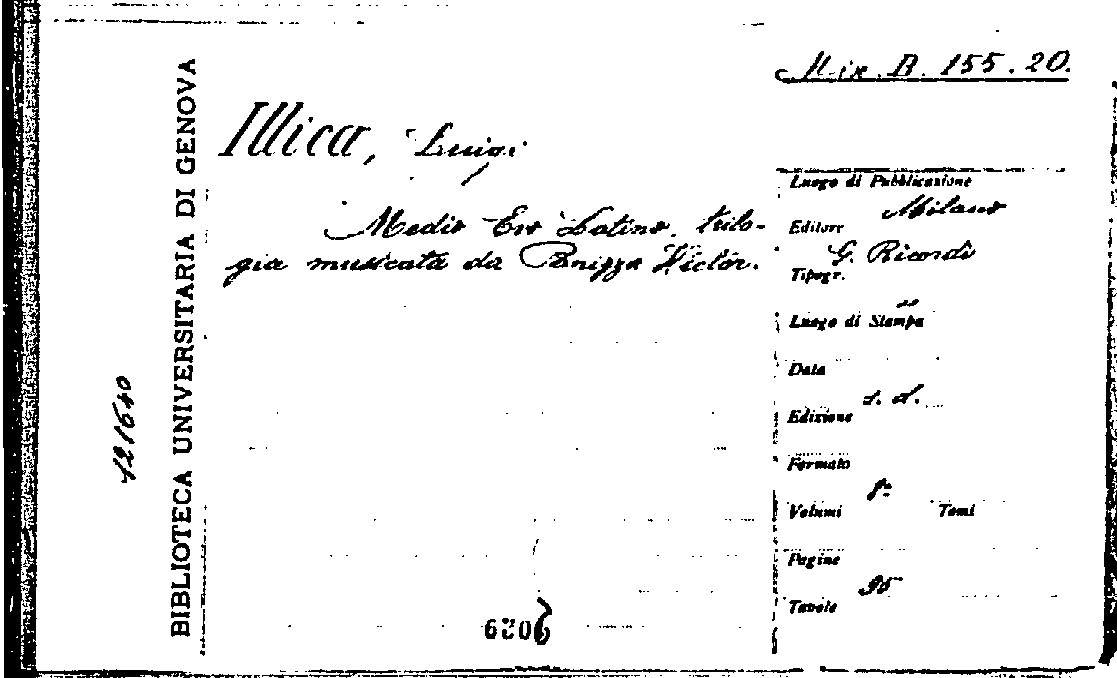 BIBLIOTECA UNIVERSITARIA DI GENOVA
121640
Mix. B. 155. 20.
Illica, Luigi
Medio Evo Latino, trilo-
gia musicata da Panizza Hector.
Luogo di Pubblicazione
Milano
Editore
G. Ricordi
Tipogr.
Luogo di Stampa
Data
s. d.
Edizione
Formato
8º
Volumi Tomi
Pagine
95
Tavole